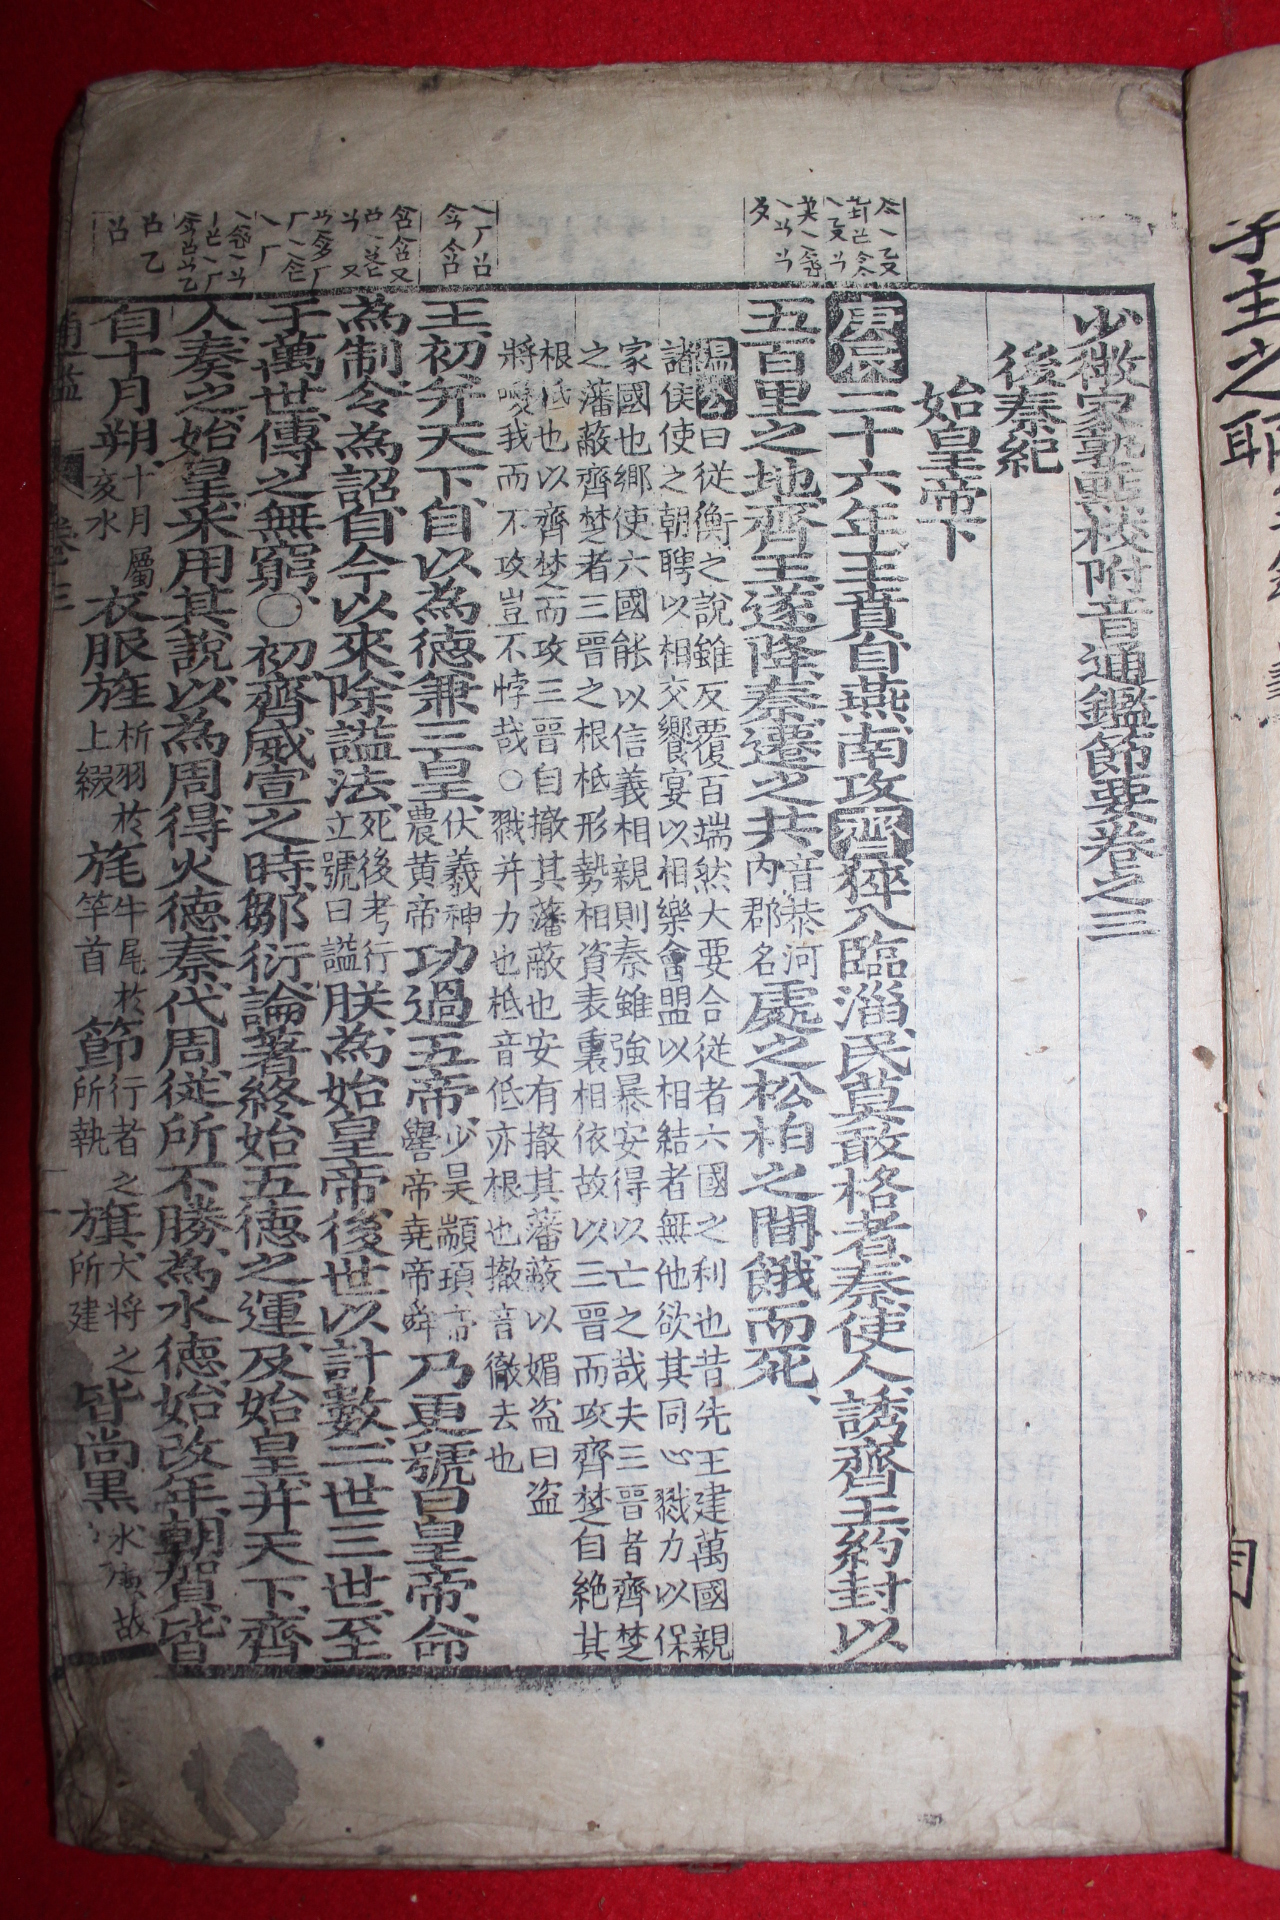 少微家塾點校附音通鑑節要卷之三
後秦紀
始皇帝下
庚辰二十六年王賁自燕南攻齊猝入臨淄民莫敢格者秦使人誘齊王約封以
五百里之地齊王遂降秦遷之共音恭河內郡名處之松柏之間餓而死
溫公曰從衡之說雖反覆百端然大要合從者六國之利也昔先王建萬國親
諸侯使之朝聘以相交饗宴以相樂會盟以相結者無他欲其同心戮力以保
家國也鄉使六國能以信義相親則秦雖強暴安得以亡之哉夫三晉者齊楚
之藩蔽齊楚者三晉之根柢形勢相資表裏相依故以三晉而攻齊楚自絶其
根柢也以齊楚而攻三晉自撤其藩蔽也安有撤其藩蔽以媚盗曰盗
將愛我而不攻豈不悖哉○戮并力也柢音低亦根也撤音徹去也
王初并天下自以為德兼三皇伏羲神農黄帝功過五帝少昊顓頊帝嚳帝堯帝舜乃更號曰皇帝命
為制令為詔自今以來除謚法死後考行立號曰謚朕為始皇帝後世以計數二世三世至
于萬世傳之無窮○初齊威宣之時鄒衍論著終始五德之運及始皇并天下齊
人奏之始皇采用其說以為周得火德秦代周從所不勝為水德始改年朝賀皆
自十月朔十月屬亥水衣服旌析羽於上綴旄牛尾於竿首節行者之所執旗大将之所建皆尚黒水德故
通鑑 卷三 一